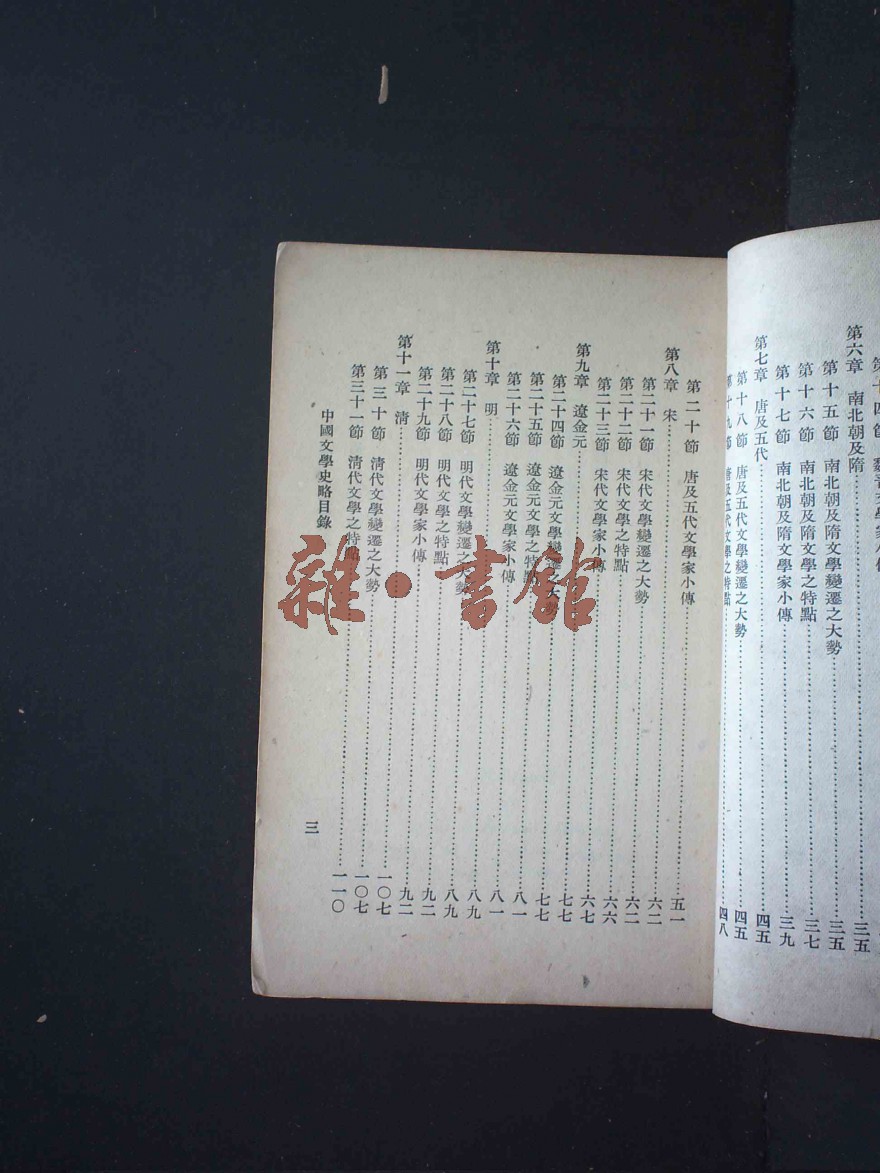 第六章 南北朝及隋……三五
第十五節 南北朝及隋文學變遷之大勢……三五
第十六節 南北朝及隋文學之特點……三七
第十七節 南北朝及隋文學家小傳……三九
第七章 唐及五代……四五
第十八節 唐及五代文學變遷之大勢……四五
第十九節 唐及五代文學之特點……四八
第二十節 唐及五代文學家小傳……五一
第八章 宋……六二
第二十一節 宋代文學變遷之大勢……六二
第二十二節 宋代文學之特點……六六
第二十三節 宋代文學家小傳……六七
第九章 遼金元……七七
第二十四節 遼金元文學變遷之大勢……七七
第二十五節 遼金元文學之特點……八一
第二十六節 遼金元文學家小傳……八一
第十章 明……八九
第二十七節 明代文學變遷之大勢……八九
第二十八節 明代文學之特點……九二
第二十九節 明代文學家小傳……九二
第十一章 清……一〇七
第三十節 清代文學變遷之大勢……一〇七
第三十一節 清代文學之特點……一一〇
中國文學史略目錄 三
雜·書館